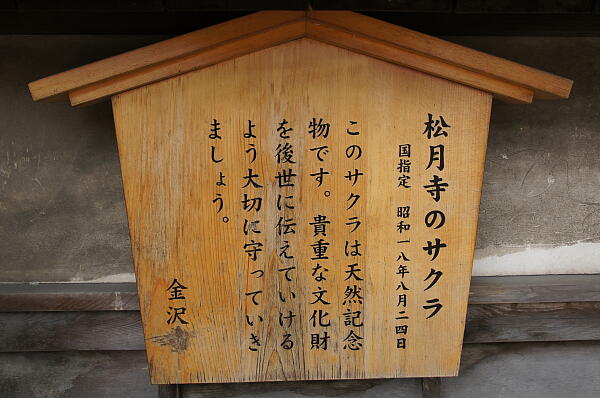 松月寺のサクラ
国指定　昭和一八年八月二四日
このサクラは天然記念
物です。貴重な文化財
を後世に伝えていける
よう大切に守っていき
ましょう。
金沢